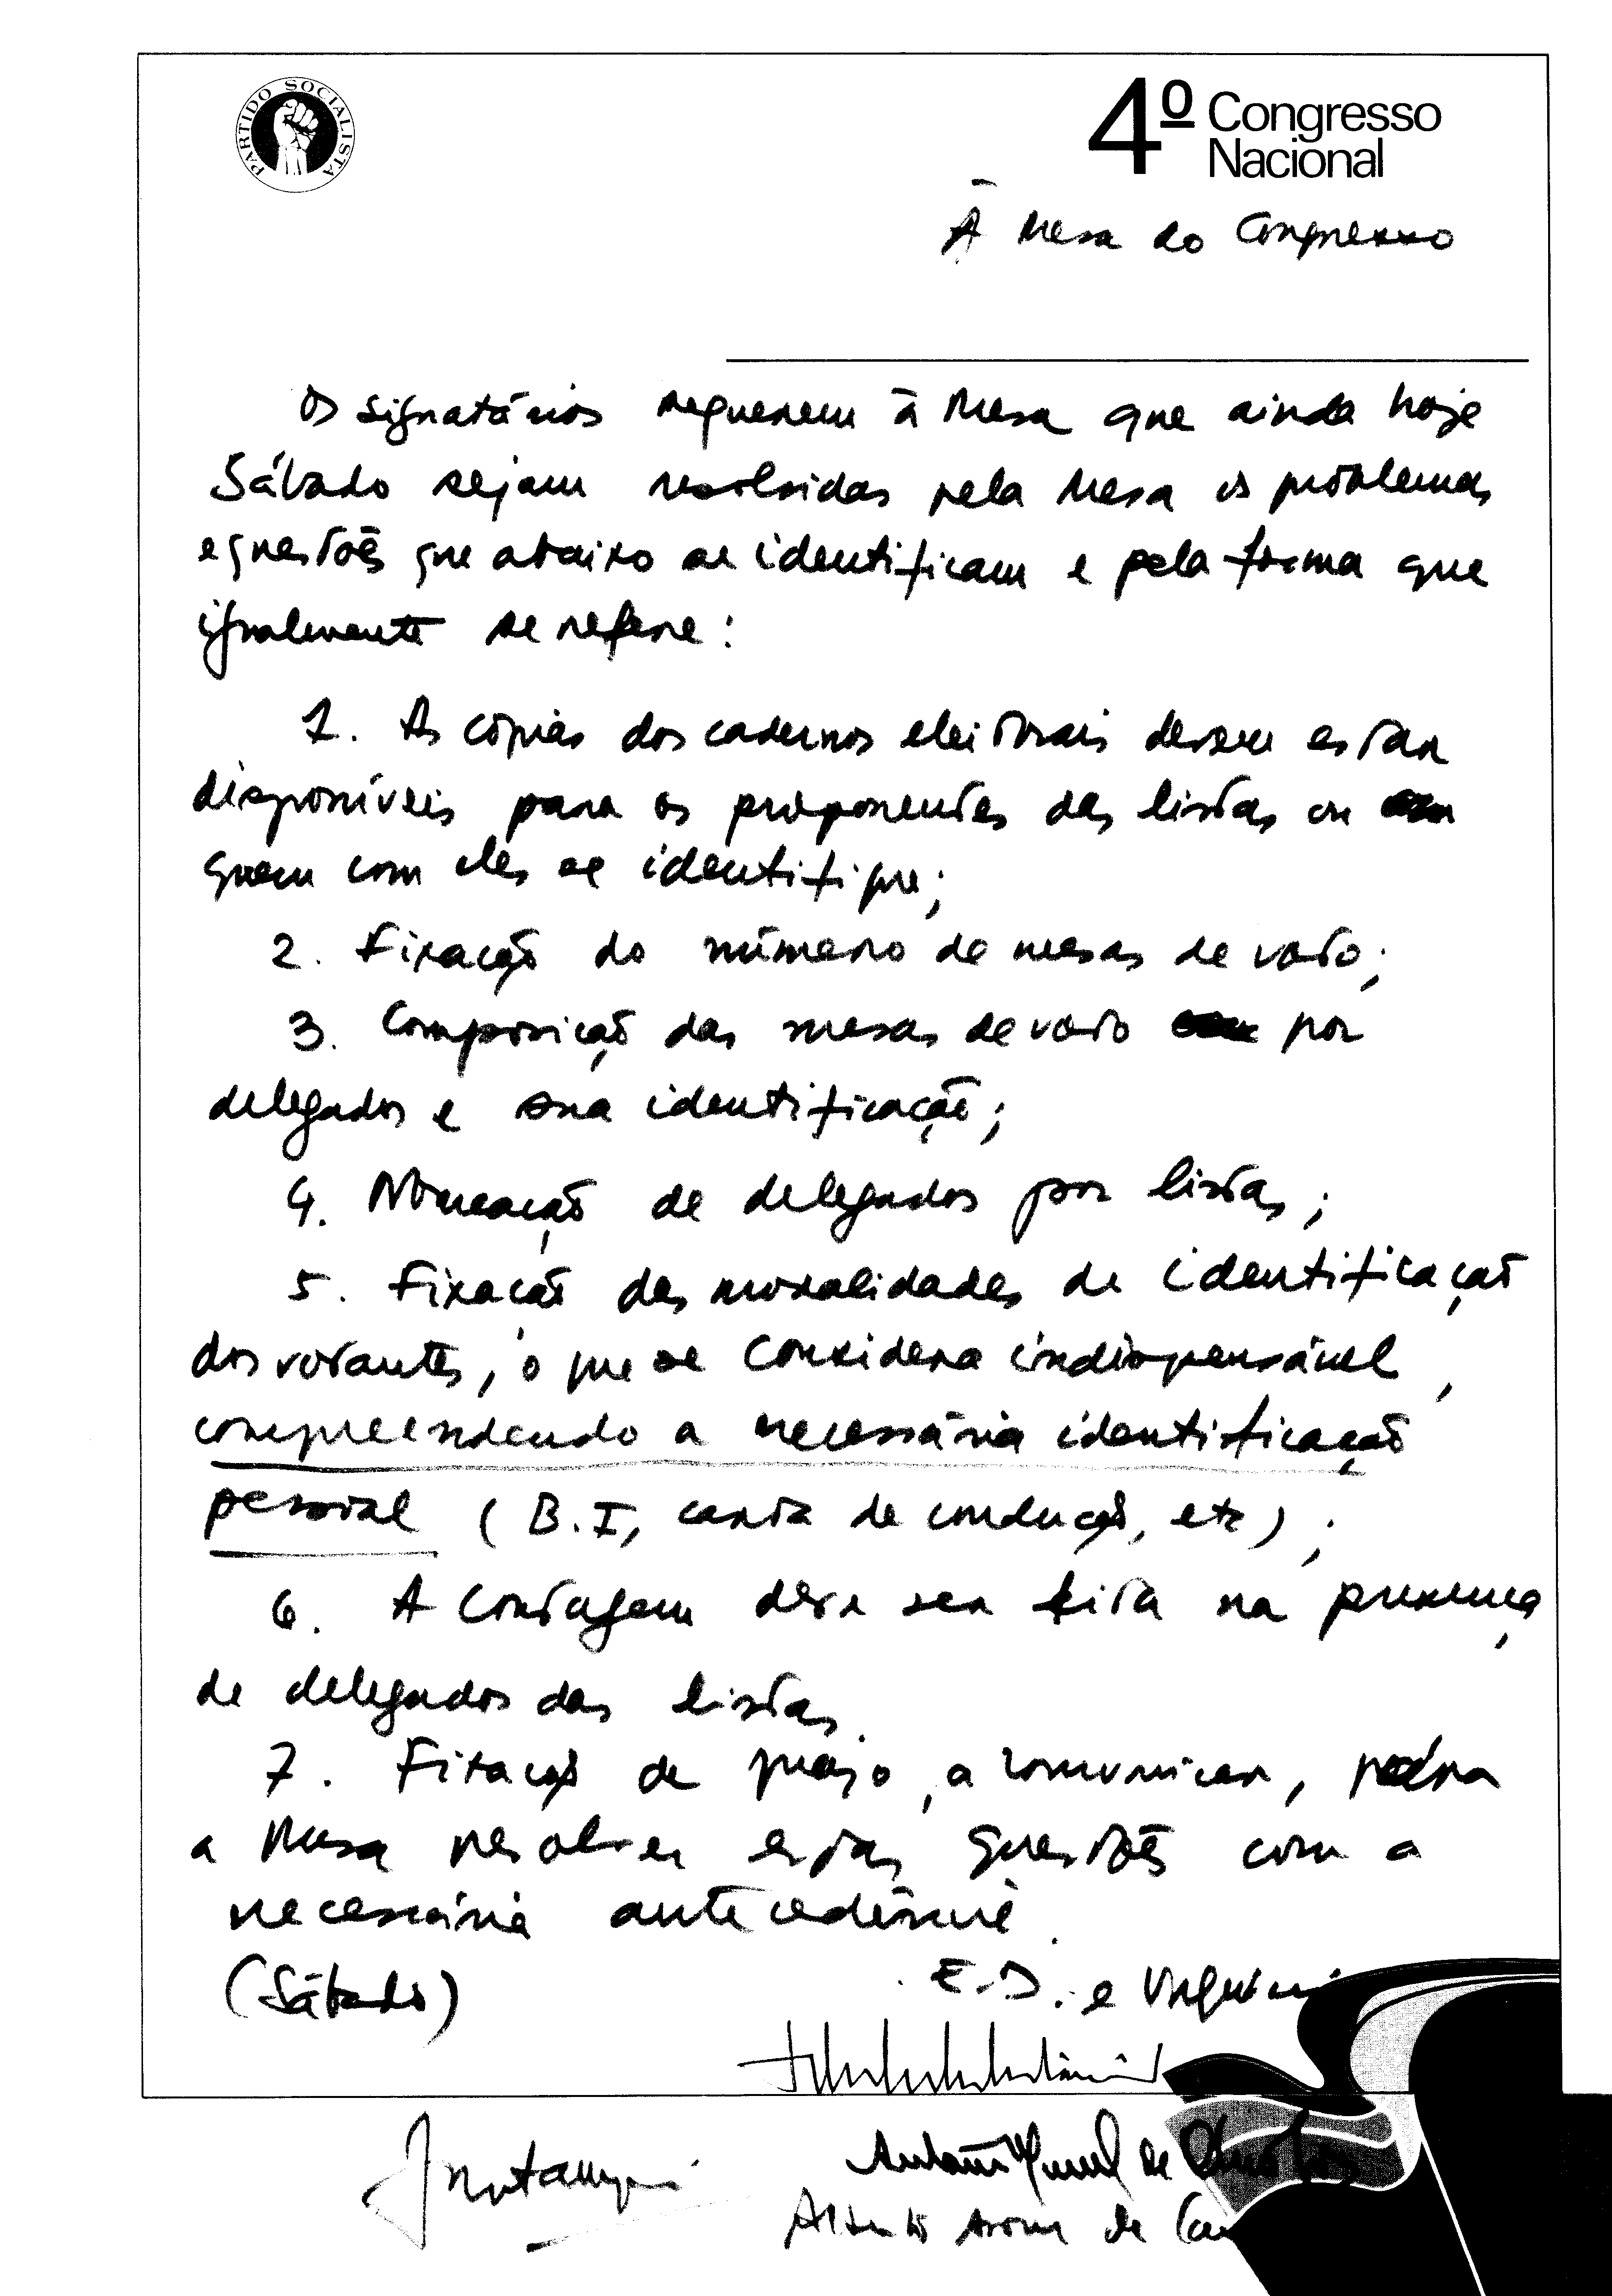 PARTIDO SOCIALISTA
4º Congresso
Nacional
À Mesa do Congresso
Os signatários requerem à Mesa que ainda hoje
Sábado sejam resolvidas pela Mesa os problemas
e questões que abaixo se identificam e pela forma que
igualmente se refere:
1. As cópias dos cadernos eleitorais devem estar
disponíveis para os proponentes das listas ou
quem com eles se identifique;
2. Fixação do número de mesas de voto;
3. Composição das mesas de voto por
delegados e sua identificação;
4. Nomeação de delegados por listas;
5. Fixação das modalidades de identificação
dos votantes, o que se considera indispensável,
compreendendo a necessária identificação
pessoal (B.I, carta de condução, etc);
6. A contagem deve ser feita na presença
de delegados das listas.
7. Fixação de prazo, a comunicar, para
a Mesa resolver estas questões com a
necessária antecedência.
(Sábado)
E.D. e
António de
Alberto de